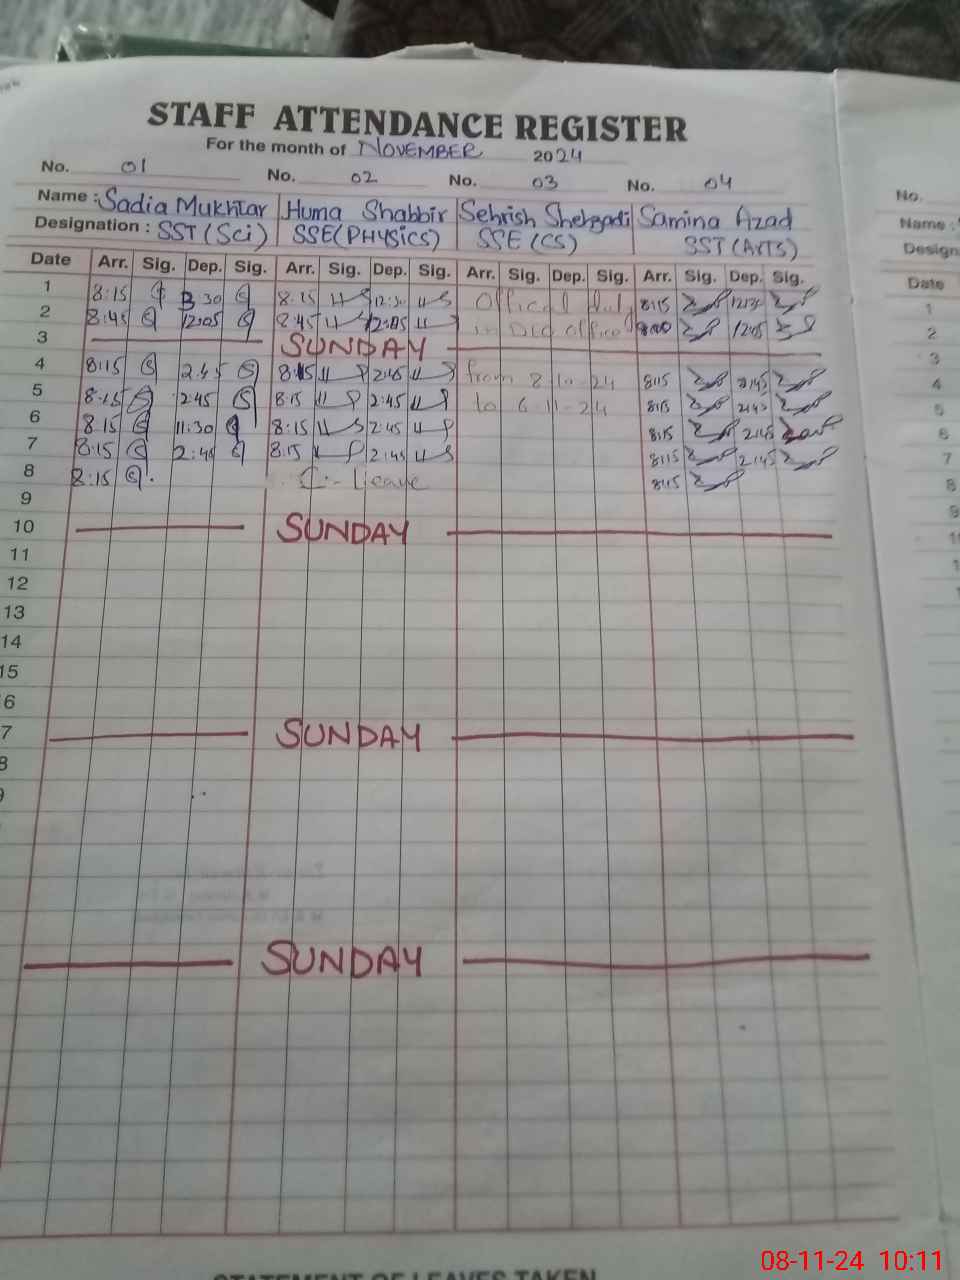 STAFF ATTENDANCE REGISTER
For the month of NOVEMBER 2024
No. 01 No. 02 No. 03 No. 04 No.
Name : Sadia Mukhtar Huma Shabbir Sehrish Shehzadi Samina Azad Name :
Designation : SST (Sci) SSE(PHYSICS) SSE (CS) SST (ARTS) Design
Date Arr. Sig. Dep. Sig. Arr. Sig. Dep. Sig. Arr. Sig. Dep. Sig. Arr. Sig. Dep. Sig. Date
1 8:15 8:15 12:30 Official duty 8:15 12:30 1
2 8:45 12:05 8:45 12:05 in office 12:05 2
3 SUNDAY 3
4 8:15 2:45 8:15 2:45 from 8-10-24 8:15 2:45 4
5 8:15 2:45 8:15 2:45 to 6-11-24 8:15 2:45 5
6 8:15 11:30 8:15 2:45 8:15 2:45 6
7 8:15 2:45 8:15 2:45 8:15 2:45 7
8 8:15 C. leave 8:15 8
9 9
10 SUNDAY 1
11 1
12
13
14
15
6
7 SUNDAY
8
9
SUNDAY
STATEMENT OF LEAVES TAKEN
08-11-24 10:11